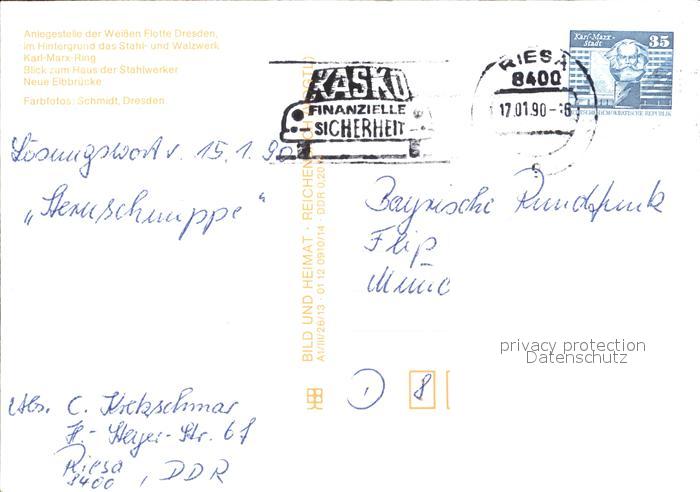 Anlegestelle der Weißen Flotte Dresden,
im Hintergrund das Stahl- und Walzwerk
Karl-Marx-Ring
Blick zum Haus der Stahlwerker
Neue Elbbrücke
Farbfotos: Schmidt, Dresden
KASKO
FINANZIELLE
SICHERHEIT
RIESA
8400
17.01.90-
Karl-Marx-
Stadt
35
DEUTSCHE DEMOKRATISCHE REPUBLIK
Lösungswort v. 15.1.90
„Sternschnuppe"
Bayrische Rundfunk
Flip
Münc
BILD UND HEIMAT · REICHEN
A1/III/26/13 · 01 12 0910/14 · DDR 0,20
privacy protection
Datenschutz
1
8
Abs. C. Kretzschmar
Str. 67
Riesa
8400, DDR